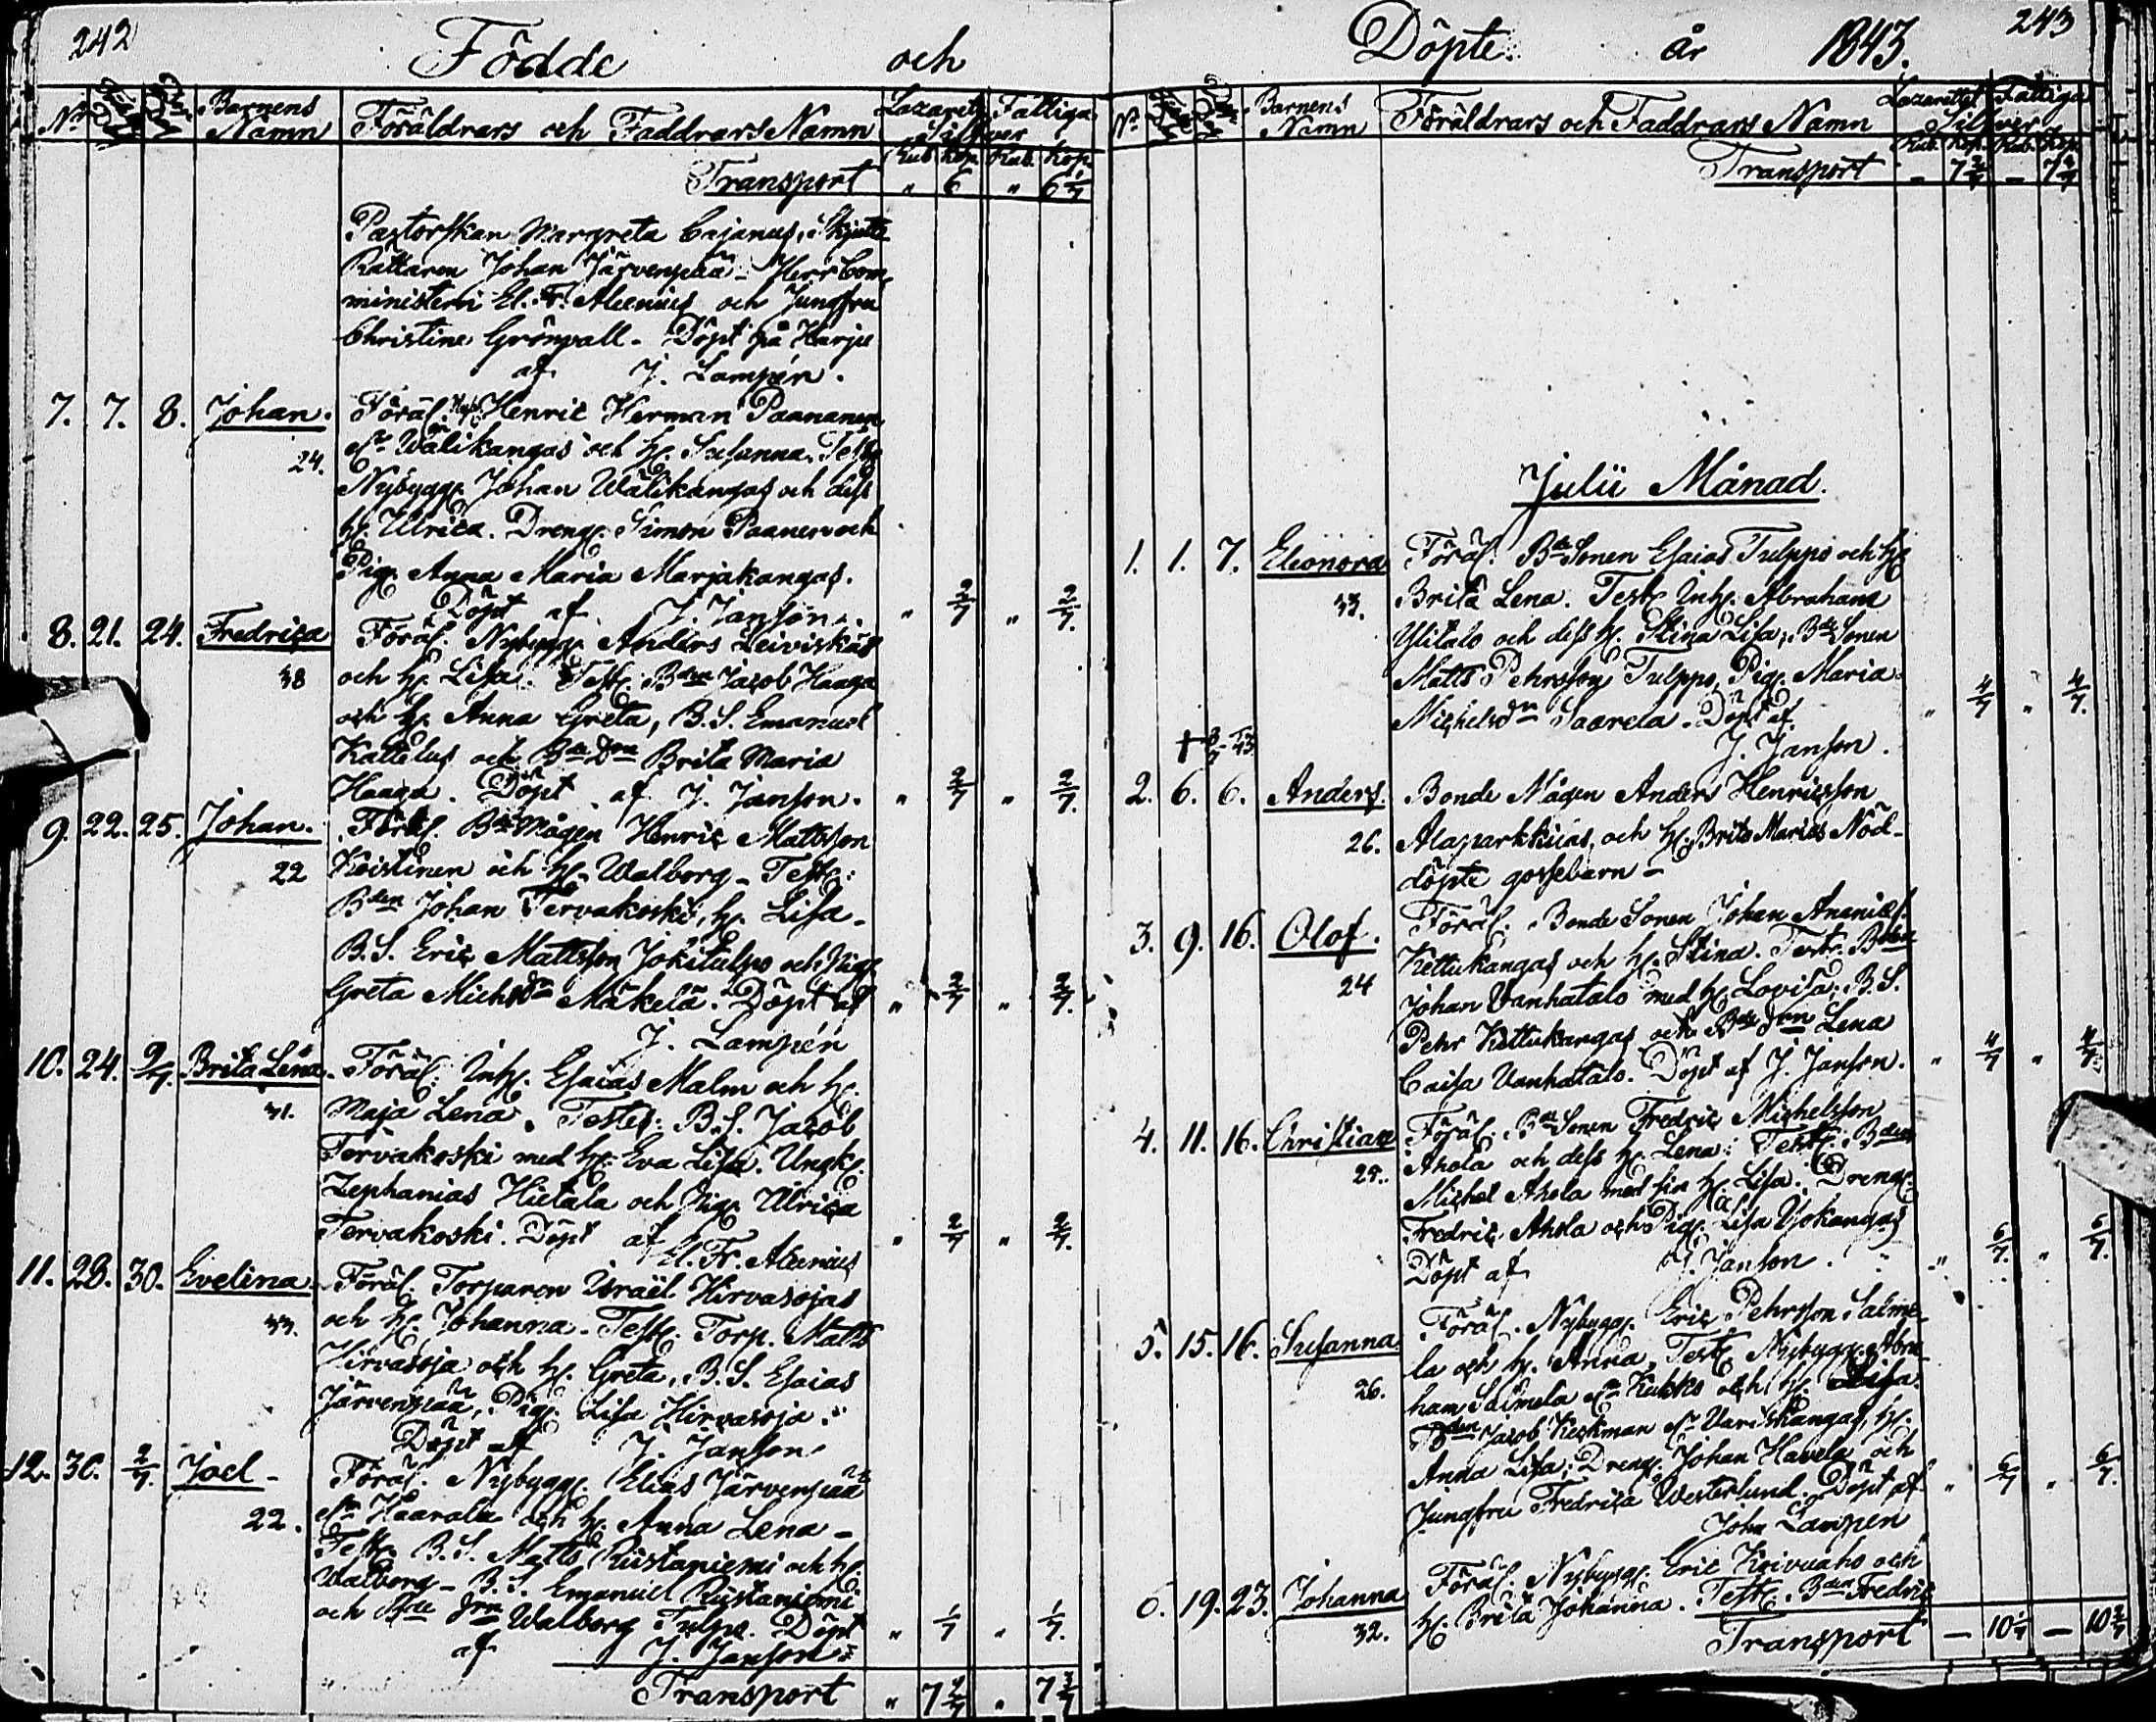 242
Födde och
No Barnens Namn Föräldrars och Faddrars Namn Lazarett Fattiga
Silfver
Rub. Kop. Rub. Kop.
Transport " 6 " 6 1/7
Pastorskan Margreta Cajanus, Skjutts
Rättaren Johan Järvenpää - Herr Com-
ministern El. Fr. Alcenius och Jungfru
Christine Grönvall - Döpt på Harju
af J. Lampén.
7. 7. 8. Johan. Föräl. Henric Herman Paananen
24. Wälikangas och h. Susanna. Test.
Nybygg. Johan Wälikangas och dess
h. Ulrica. Dreng. Simon Paanen och
Pig. Anna Maria Marjakangas.
Döpt af J. Janson. " 2/7 " 2/7.
8. 21. 24. Fredrica Föräl. Nybygg. Anders Leiviskäs
38 och h. Lisa. Test. Bden Jacob Haaga
och h. Anna Greta, B. S. Emanuel
Kattelus och Bde Drn Brita Maria
Haaga. Döpt af J. Janson. " 2/7 " 2/7.
9. 22. 25. Johan. Föräl. Bde Mågen Henric Mattsson
22 Koistinen och h. Walborg - Test:
Bden Johan Tervakoski, h. Lisa -
B. S. Eric Mattsson Jokitulpo och Pig.
Greta Michsdr Mäkelä. Döpt af " 2/7 " 2/7.
J. Lampén
10. 24. 2/7. Brita Lena. Föräl. Inh. Esaias Malm och h.
31. Maja Lena. Testes: B. S. Jacob
Tervakoski med h. Eva Lisa. Ungk.
Zephanias Hietala och Pig. Ulrica
Tervakoski. Döpt af " 2/7 " 2/7.
El. Fr. Alcenius
11. 28. 30. Evelina. Föräl. Torparen Israël Hirvasojas
33. och h. Johanna. Test. Torp. Matts
Hirvasoja och h. Greta, B. S. Esaias
Järvenpää, Pig. Lisa Hirvasoja.
Döpt af J. Janson
12. 30. 2/7. Joel - Föräl. Nybygg. Elias Järvenpää
22. Haarala och h. Anna Lena -
Test. B. S. Matts Ristaniemi och h.
Walborg - B. S. Emanuel Ristaniemi
och Bde Drn Walborg Tulpo. Döpt " 1/7 " 1/7.
af J. Janson
Transport " 7 2/7 " 7 3/7
243
Döpte år 1843.
No Barnens Namn Föräldrars och Faddrars Namn Lazarettet Fattiga
Silfver
Rub. Kop. Rub. Kop.
Transport - 7 2/7 - 7 3/7
Julii Månad.
1. 1. 7. Eleonora Föräl. Bde Sonen Esaias Tulppo och h.
33. Brita Lena. Test. Inh. Abraham
Ylitalo och dess h. Stina Lisa, Bde Sonen
Matts Pehrsson Tulppo, Pig. Maria
Michelsdr Saarela. Döpt af " 4/7 " 4/7.
J. Janson.
2. 6. 6. Anders. Bonde Mågen Anders Henricsson
26. Alaparkkilas, och h. Brita Marias Nöd-
döpte gossebarn -
3. 9. 16. Olof. Föräl. Bonde Sonen Johan Ananias.
24 Kettukangas och h. Stina. Test. Bden
Johan Vanhatalo med h. Lovisa; B. S.
Pehr Kettukangas och Bde Drn Lena
Caisa Vanhatalo. Döpt af J. Janson. " 4/7 " 4/7.
4. 11. 16. Christian Föräl. Bde Sonen Fredric Michelsson
25. Ahola och dess h. Lena: Test. Bden
Michel Ahola med sin h. Lisa. Dreng.
Fredric Ahola och Pig. Lisa Ujokangas
Döpt af J. Janson. " 6/7 " 6/7.
5. 15. 16. Susanna Föräl. Nybygg. Eric Pehrsson Salme-
26. la och h. Anna, Test. Nybygg. Abra-
ham Salmela Kukko och h. Lisa.
Bden Jacob Keckman Variskangas, h.
Anna Lisa; Dreng. Johan Havela och
Jungfru Fredrica Westerlund. Döpt af " 6/7 " 6/7.
John Lampén
6. 19. 23. Johanna Föräl. Nybygg. Eric Koivuaho och
32. h. Brita Johanna. Test. Bden Fredric
Transport - 10 1/7 - 10 2/7